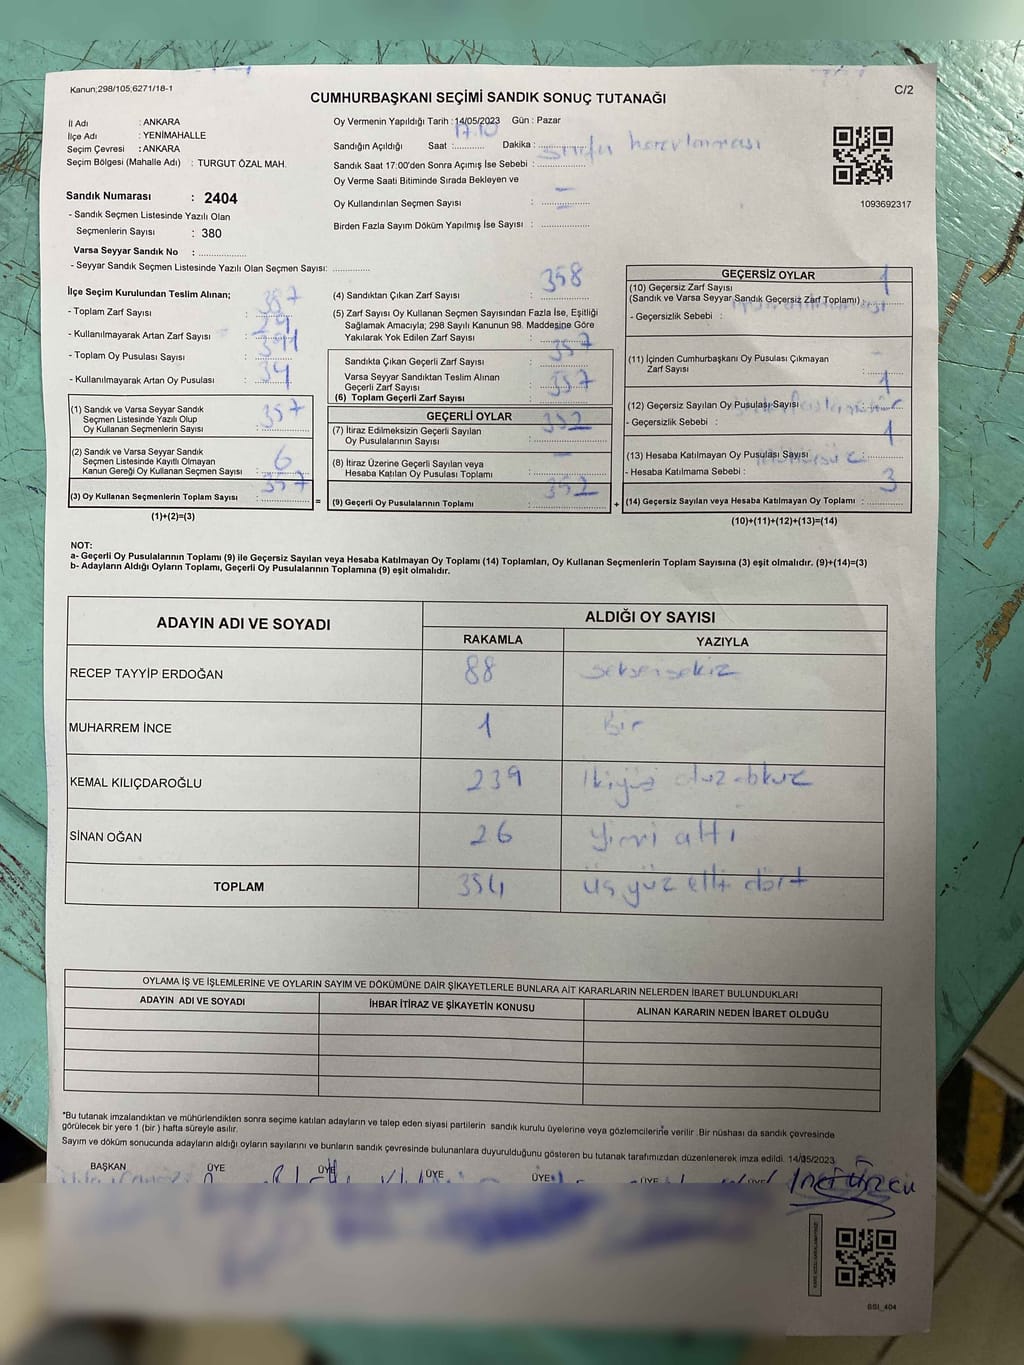 Kanun;298/105,6271/18-1
C/2
CUMHURBAŞKANI SEÇİMİ SANDIK SONUÇ TUTANAĞI
İl Adı : ANKARA
İlçe Adı : YENİMAHALLE
Seçim Çevresi : ANKARA
Seçim Bölgesi (Mahalle Adı) : TURGUT ÖZAL MAH.
Sandık Numarası : 2404
- Sandık Seçmen Listesinde Yazılı Olan
Seçmenlerin Sayısı : 380
Varsa Seyyar Sandık No : ..............
- Seyyar Sandık Seçmen Listesinde Yazılı Olan Seçmen Sayısı: ............
Oy Vermenin Yapıldığı Tarih : 14/05/2023 Gün : Pazar
Sandığın Açıldığı Saat : 17.10 Dakika : ..............
Sandık Saat 17:00'den Sonra Açımış İse Sebebi : sınıfın
Oy Verme Saati Bitiminde Sırada Bekleyen ve
Oy Kullandırılan Seçmen Sayısı : –
Birden Fazla Sayım Döküm Yapılmış İse Sayısı : ..............
1093692317
İlçe Seçim Kurulundan Teslim Alınan;
- Toplam Zarf Sayısı :
- Kullanılmayarak Artan Zarf Sayısı :
- Toplam Oy Pusulası Sayısı : 391
- Kullanılmayarak Artan Oy Pusulası : 34
(1) Sandık ve Varsa Seyyar Sandık
Seçmen Listesinde Yazılı Olup
Oy Kullanan Seçmenlerin Sayısı : 357
(2) Sandık ve Varsa Seyyar Sandık
Seçmen Listesinde Kayıtlı Olmayan
Kanun Gereği Oy Kullanan Seçmen Sayısı : 6
(3) Oy Kullanan Seçmenlerin Toplam Sayısı : 357 =
(1)+(2)=(3)
(4) Sandıktan Çıkan Zarf Sayısı : 358
(5) Zarf Sayısı Oy Kullanan Seçmen Sayısından Fazla İse, Eşitliği
Sağlamak Amacıyla; 298 Sayılı Kanunun 98. Maddesine Göre
Yakılarak Yok Edilen Zarf Sayısı :
Sandıkta Çıkan Geçerli Zarf Sayısı : 357
Varsa Seyyar Sandıktan Teslim Alınan
Geçerli Zarf Sayısı :
(6) Toplam Geçerli Zarf Sayısı : 357
GEÇERLİ OYLAR
(7) İtiraz Edilmeksizin Geçerli Sayılan
Oy Pusulalarının Sayısı : 352
(8) İtiraz Üzerine Geçerli Sayılan veya
Hesaba Katılan Oy Pusulası Toplamı : –
(9) Geçerli Oy Pusulalarının Toplamı : 352 +
GEÇERSİZ OYLAR
(10) Geçersiz Zarf Sayısı 1
(Sandık ve Varsa Seyyar Sandık Geçersiz Zarf Toplamı) :
- Geçersizlik Sebebi :
(11) İçinden Cumhurbaşkanı Oy Pusulası Çıkmayan
Zarf Sayısı : –
(12) Geçersiz Sayılan Oy Pusulası Sayısı : 1
- Geçersizlik Sebebi :
(13) Hesaba Katılmayan Oy Pusulası Sayısı : 1
- Hesaba Katılmama Sebebi : mühürsüz
(14) Geçersiz Sayılan veya Hesaba Katılmayan Oy Toplamı : 3
(10)+(11)+(12)+(13)=(14)
NOT:
a- Geçerli Oy Pusulalarının Toplamı (9) ile Geçersiz Sayılan veya Hesaba Katılmayan Oy Toplamı (14) Toplamları, Oy Kullanan Seçmenlerin Toplam Sayısına (3) eşit olmalıdır. (9)+(14)=(3)
b- Adayların Aldığı Oyların Toplamı, Geçerli Oy Pusulalarının Toplamına (9) eşit olmalıdır.
ADAYIN ADI VE SOYADI
ALDIĞI OY SAYISI
RAKAMLA YAZIYLA
RECEP TAYYİP ERDOĞAN 88 seksensekiz
MUHARREM İNCE 1 Bir
KEMAL KILIÇDAROĞLU 239 İkiyüz otuz dokuz
SİNAN OĞAN 26 yirmi altı
TOPLAM 354 üç yüz elli dört
OYLAMA İŞ VE İŞLEMLERİNE VE OYLARIN SAYIM VE DÖKÜMÜNE DAİR ŞİKAYETLERLE BUNLARA AİT KARARLARIN NELERDEN İBARET BULUNDUKLARI
ADAYIN ADI VE SOYADI İHBAR İTİRAZ VE ŞİKAYETİN KONUSU ALINAN KARARIN NEDEN İBARET OLDUĞU
*Bu tutanak imzalandıktan ve mühürlendikten sonra seçime katılan adayların ve talep eden siyasi partilerin sandık kurulu üyelerine veya gözlemcilerine verilir. Bir nüshası da sandık çevresinde
görülecek bir yere 1 (bir ) hafta süreyle asılır.
Sayım ve döküm sonucunda adayların aldığı oyların sayılarını ve bunların sandık çevresinde bulunanlara duyurulduğunu gösteren bu tutanak tarafımızdan düzenlenerek imza edildi. 14/05/2023
BAŞKAN ÜYE ÜYE ÜYE ÜYE ÜYE ÜYE
BSI_404